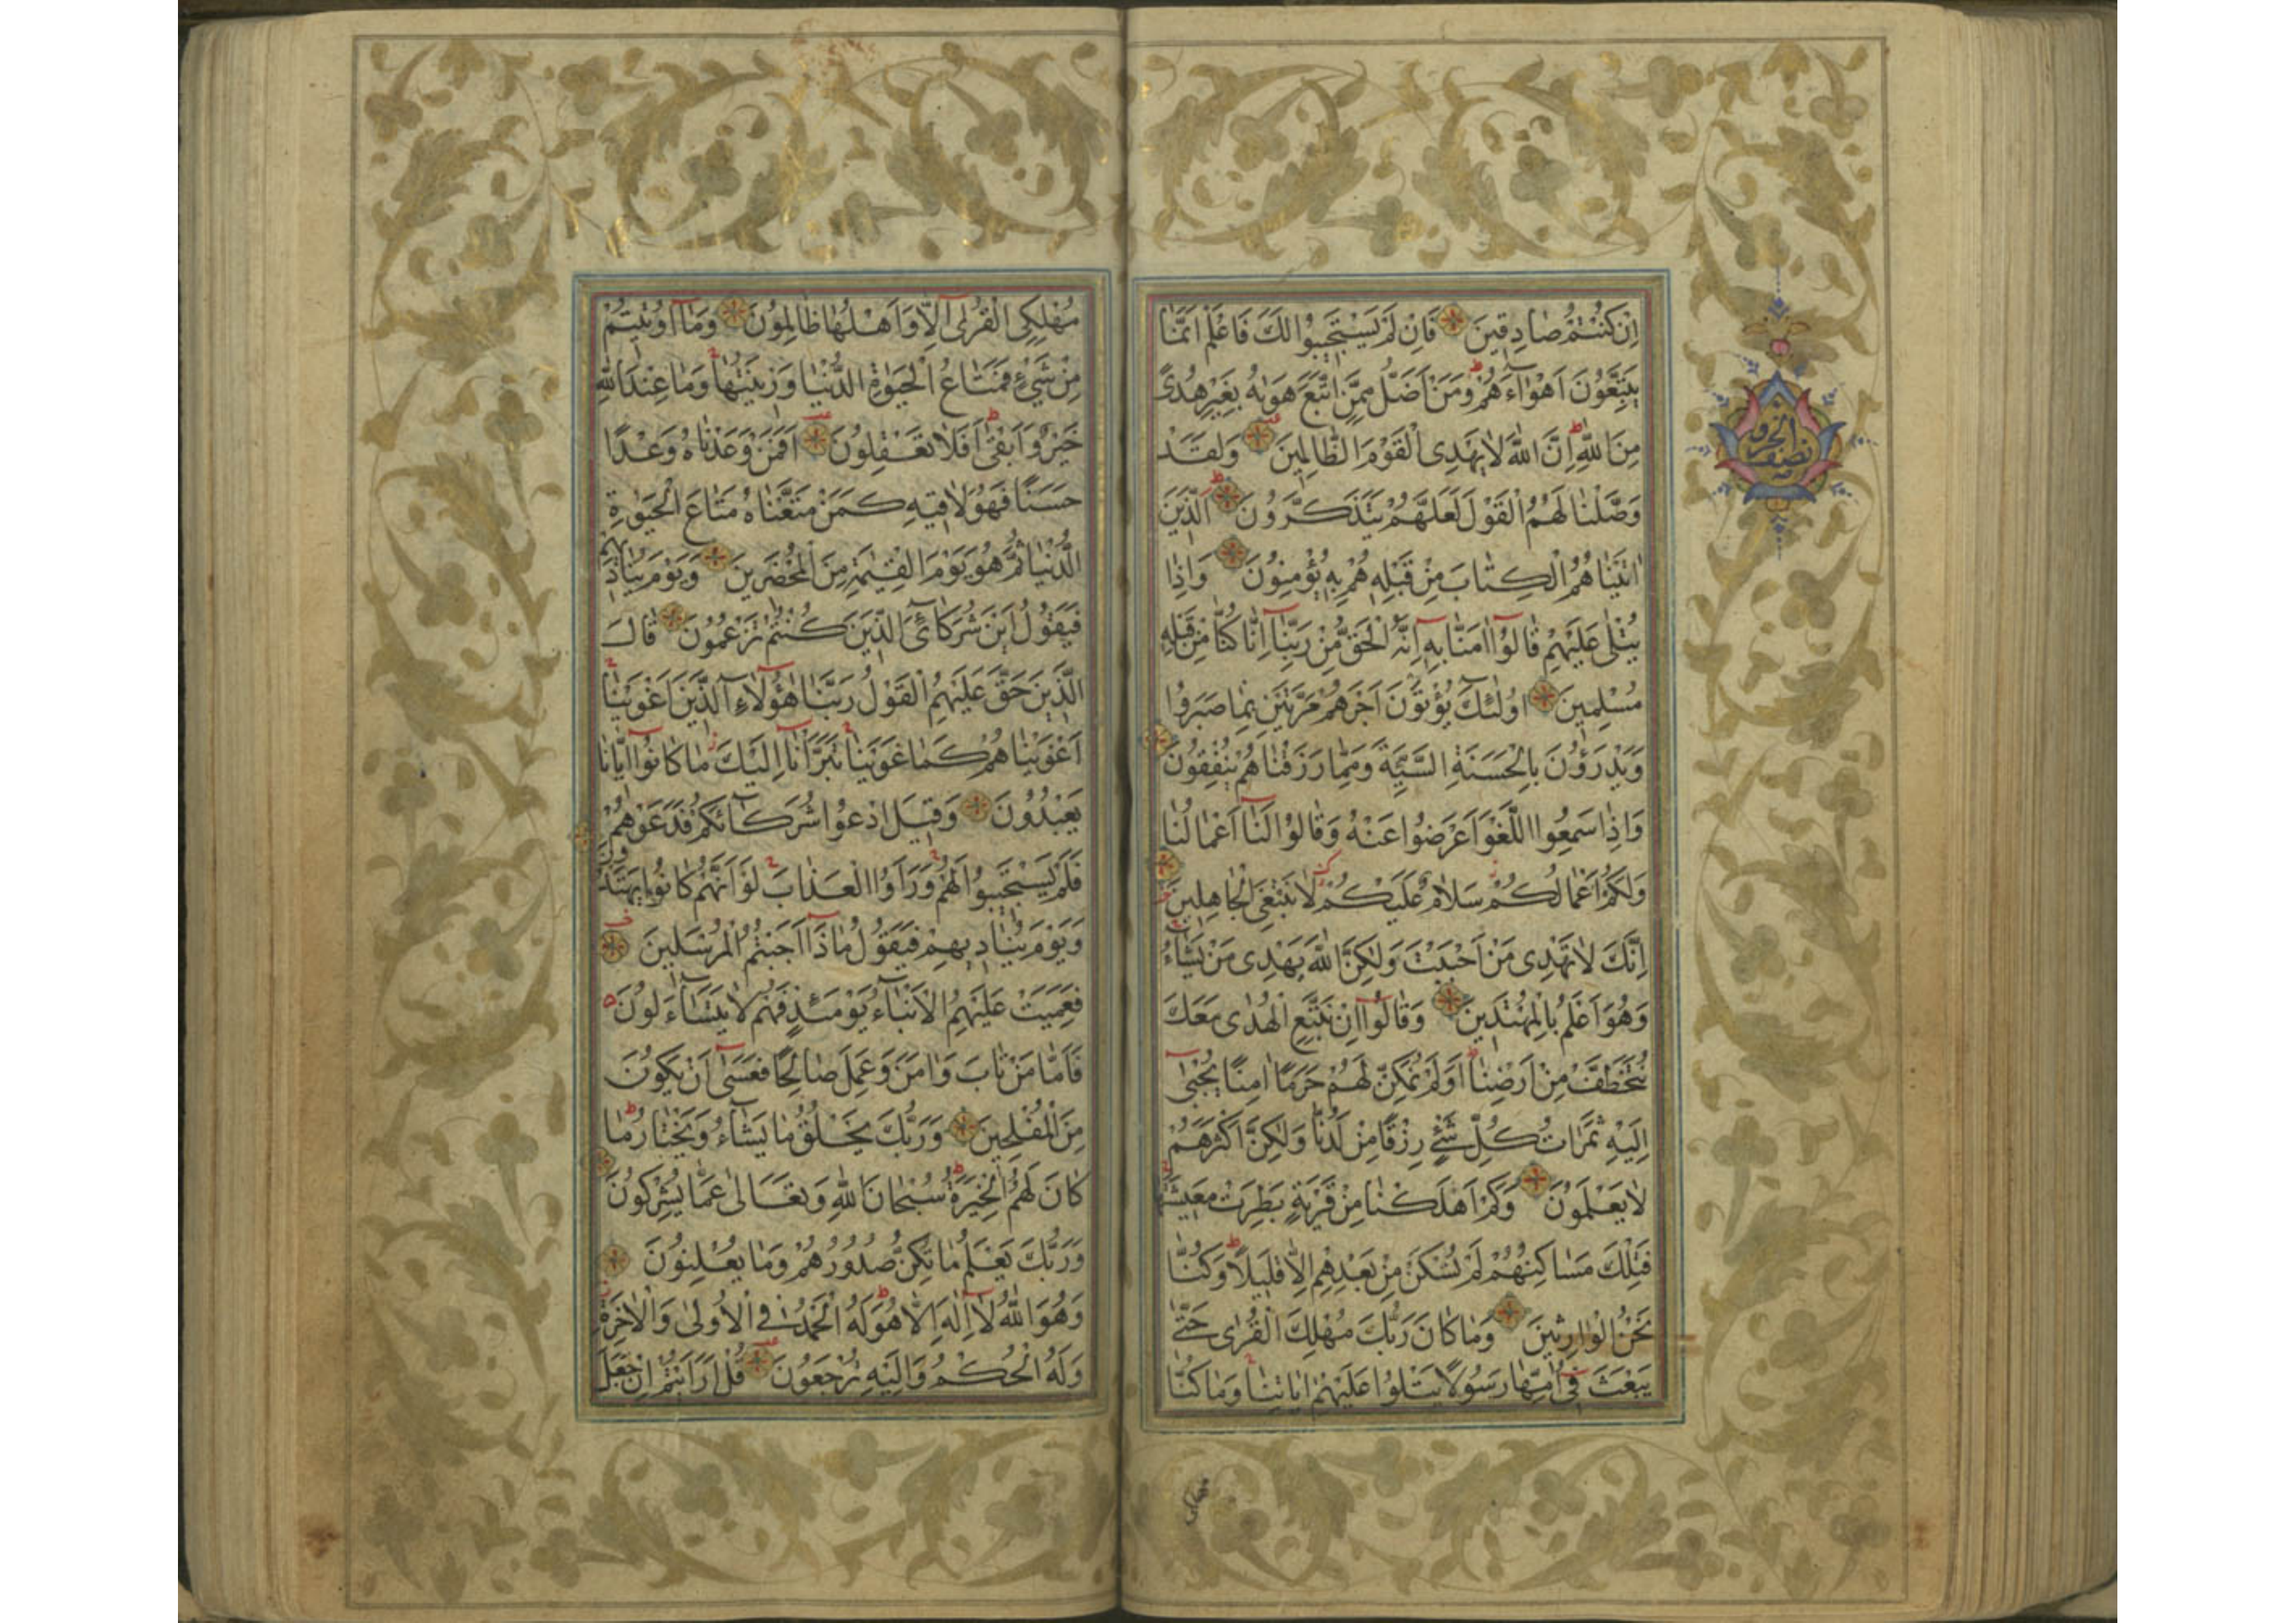 اِنْ كُنْتُمْ صَادِقِينَ فَاِنْ لَمْ يَسْتَجِيبُوا لَكَ فَاعْلَمْ اَنَّمَا
يَتَّبِعُونَ اَهْوَاۤءَهُمْ وَمَنْ اَضَلُّ مِمَّنِ اتَّبَعَ هَوٰيهُ بِغَيْرِ هُدًى
مِنَ اللّٰهِ اِنَّ اللّٰهَ لَا يَهْدِى الْقَوْمَ الظَّالِمِينَ وَلَقَدْ
وَصَّلْنَا لَهُمُ الْقَوْلَ لَعَلَّهُمْ يَتَذَكَّرُونَ اَلَّذِينَ
اٰتَيْنَاهُمُ الْكِتَابَ مِنْ قَبْلِهِ هُمْ بِهِ يُؤْمِنُونَ وَاِذَا
يُتْلٰى عَلَيْهِمْ قَالُوۤا اٰمَنَّا بِهِۤ اِنَّهُ الْحَقُّ مِنْ رَبِّنَاۤ اِنَّا كُنَّا مِنْ قَبْلِهِ
مُسْلِمِينَ اُولٰۤئِكَ يُؤْتَوْنَ اَجْرَهُمْ مَرَّتَيْنِ بِمَا صَبَرُوا
وَيَدْرَؤُنَ بِالْحَسَنَةِ السَّيِّئَةَ وَمِمَّا رَزَقْنَاهُمْ يُنْفِقُونَ
وَاِذَا سَمِعُوا اللَّغْوَ اَعْرَضُوا عَنْهُ وَقَالُوا لَنَاۤ اَعْمَالُنَا
وَلَكُمْ اَعْمَالُكُمْ سَلَامٌ عَلَيْكُمْ لَا نَبْتَغِى الْجَاهِلِينَ
اِنَّكَ لَا تَهْدِى مَنْ اَحْبَبْتَ وَلٰكِنَّ اللّٰهَ يَهْدِى مَنْ يَشَاۤءُ
وَهُوَ اَعْلَمُ بِالْمُهْتَدِينَ وَقَالُوۤا اِنْ نَتَّبِعِ الْهُدٰى مَعَكَ
نُتَخَطَّفْ مِنْ اَرْضِنَا اَوَلَمْ نُمَكِّنْ لَهُمْ حَرَمًا اٰمِنًا يُجْبٰىۤ
اِلَيْهِ ثَمَرَاتُ كُلِّ شَيْءٍ رِزْقًا مِنْ لَدُنَّا وَلٰكِنَّ اَكْثَرَهُمْ
لَا يَعْلَمُونَ وَكَمْ اَهْلَكْنَا مِنْ قَرْيَةٍ بَطِرَتْ مَعِيشَتَهَا
فَتِلْكَ مَسَاكِنُهُمْ لَمْ تُسْكَنْ مِنْ بَعْدِهِمْ اِلَّا قَلِيلًا وَكُنَّا
نَحْنُ الْوَارِثِينَ وَمَا كَانَ رَبُّكَ مُهْلِكَ الْقُرٰى حَتّٰى
يَبْعَثَ فِىۤ اُمِّهَا رَسُولًا يَتْلُوا عَلَيْهِمْ اٰيَاتِنَا وَمَا كُنَّا
نصف الحزب
مُهْلِكِى الْقُرٰىۤ اِلَّا وَاَهْلُهَا ظَالِمُونَ وَمَاۤ اُوتِيتُمْ
مِنْ شَيْءٍ فَمَتَاعُ الْحَيٰوةِ الدُّنْيَا وَزِينَتُهَا وَمَا عِنْدَ اللّٰهِ
خَيْرٌ وَاَبْقٰى اَفَلَا تَعْقِلُونَ اَفَمَنْ وَعَدْنَاهُ وَعْدًا
حَسَنًا فَهُوَ لَاقِيهِ كَمَنْ مَتَّعْنَاهُ مَتَاعَ الْحَيٰوةِ
الدُّنْيَا ثُمَّ هُوَ يَوْمَ الْقِيٰمَةِ مِنَ الْمُحْضَرِينَ وَيَوْمَ يُنَادِيهِمْ
فَيَقُولُ اَيْنَ شُرَكَاۤئِىَ الَّذِينَ كُنْتُمْ تَزْعُمُونَ قَالَ
الَّذِينَ حَقَّ عَلَيْهِمُ الْقَوْلُ رَبَّنَا هٰۤؤُلَاۤءِ الَّذِينَ اَغْوَيْنَا
اَغْوَيْنَاهُمْ كَمَا غَوَيْنَا تَبَرَّأْنَاۤ اِلَيْكَ مَا كَانُوۤا اِيَّانَا
يَعْبُدُونَ وَقِيلَ ادْعُوا شُرَكَاۤئَكُمْ فَدَعَوْهُمْ
فَلَمْ يَسْتَجِيبُوا لَهُمْ وَرَاَوُا الْعَذَابَ لَوْ اَنَّهُمْ كَانُوا يَهْتَدُونَ
وَيَوْمَ يُنَادِيهِمْ فَيَقُولُ مَاذَاۤ اَجَبْتُمُ الْمُرْسَلِينَ
فَعَمِيَتْ عَلَيْهِمُ الْاَنْبَاۤءُ يَوْمَئِذٍ فَهُمْ لَا يَتَسَاۤءَلُونَ
فَاَمَّا مَنْ تَابَ وَاٰمَنَ وَعَمِلَ صَالِحًا فَعَسٰىۤ اَنْ يَكُونَ
مِنَ الْمُفْلِحِينَ وَرَبُّكَ يَخْلُقُ مَا يَشَاۤءُ وَيَخْتَارُ مَا
كَانَ لَهُمُ الْخِيَرَةُ سُبْحَانَ اللّٰهِ وَتَعَالٰى عَمَّا يُشْرِكُونَ
وَرَبُّكَ يَعْلَمُ مَا تُكِنُّ صُدُورُهُمْ وَمَا يُعْلِنُونَ
وَهُوَ اللّٰهُ لَاۤ اِلٰهَ اِلَّا هُوَ لَهُ الْحَمْدُ فِى الْاُولٰى وَالْاٰخِرَةِ
وَلَهُ الْحُكْمُ وَاِلَيْهِ تُرْجَعُونَ قُلْ اَرَاَيْتُمْ اِنْ جَعَلَ